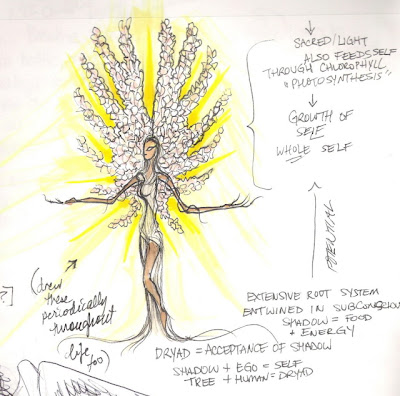 SACRED/LIGHT
ALSO FEEDS SELF
THROUGH CHLOROPHYLL
"PHOTOSYNTHESIS"
GROWTH OF
SELF
WHOLE SELF
POTENTIAL
?]
(drew
these
periodically
throughout
life
too)
EXTENSIVE ROOT SYSTEM
ENTWINED IN SUBCONSCIOU
SHADOW = FOOD
+ ENERGY
DRYAD = ACCEPTANCE OF SHADOW
SHADOW + EGO = SELF
TREE + HUMAN = DRYAD